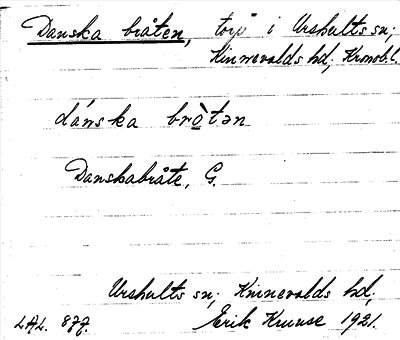 Danska bråten, torp i Urshults sn;
Kinnevalds hd, Kronob.l.
dánska brò̲tən
Danskabråte, G.
Urshults sn; Kinnevalds hd;
LAL. 877. Erik Kruuse 1921.